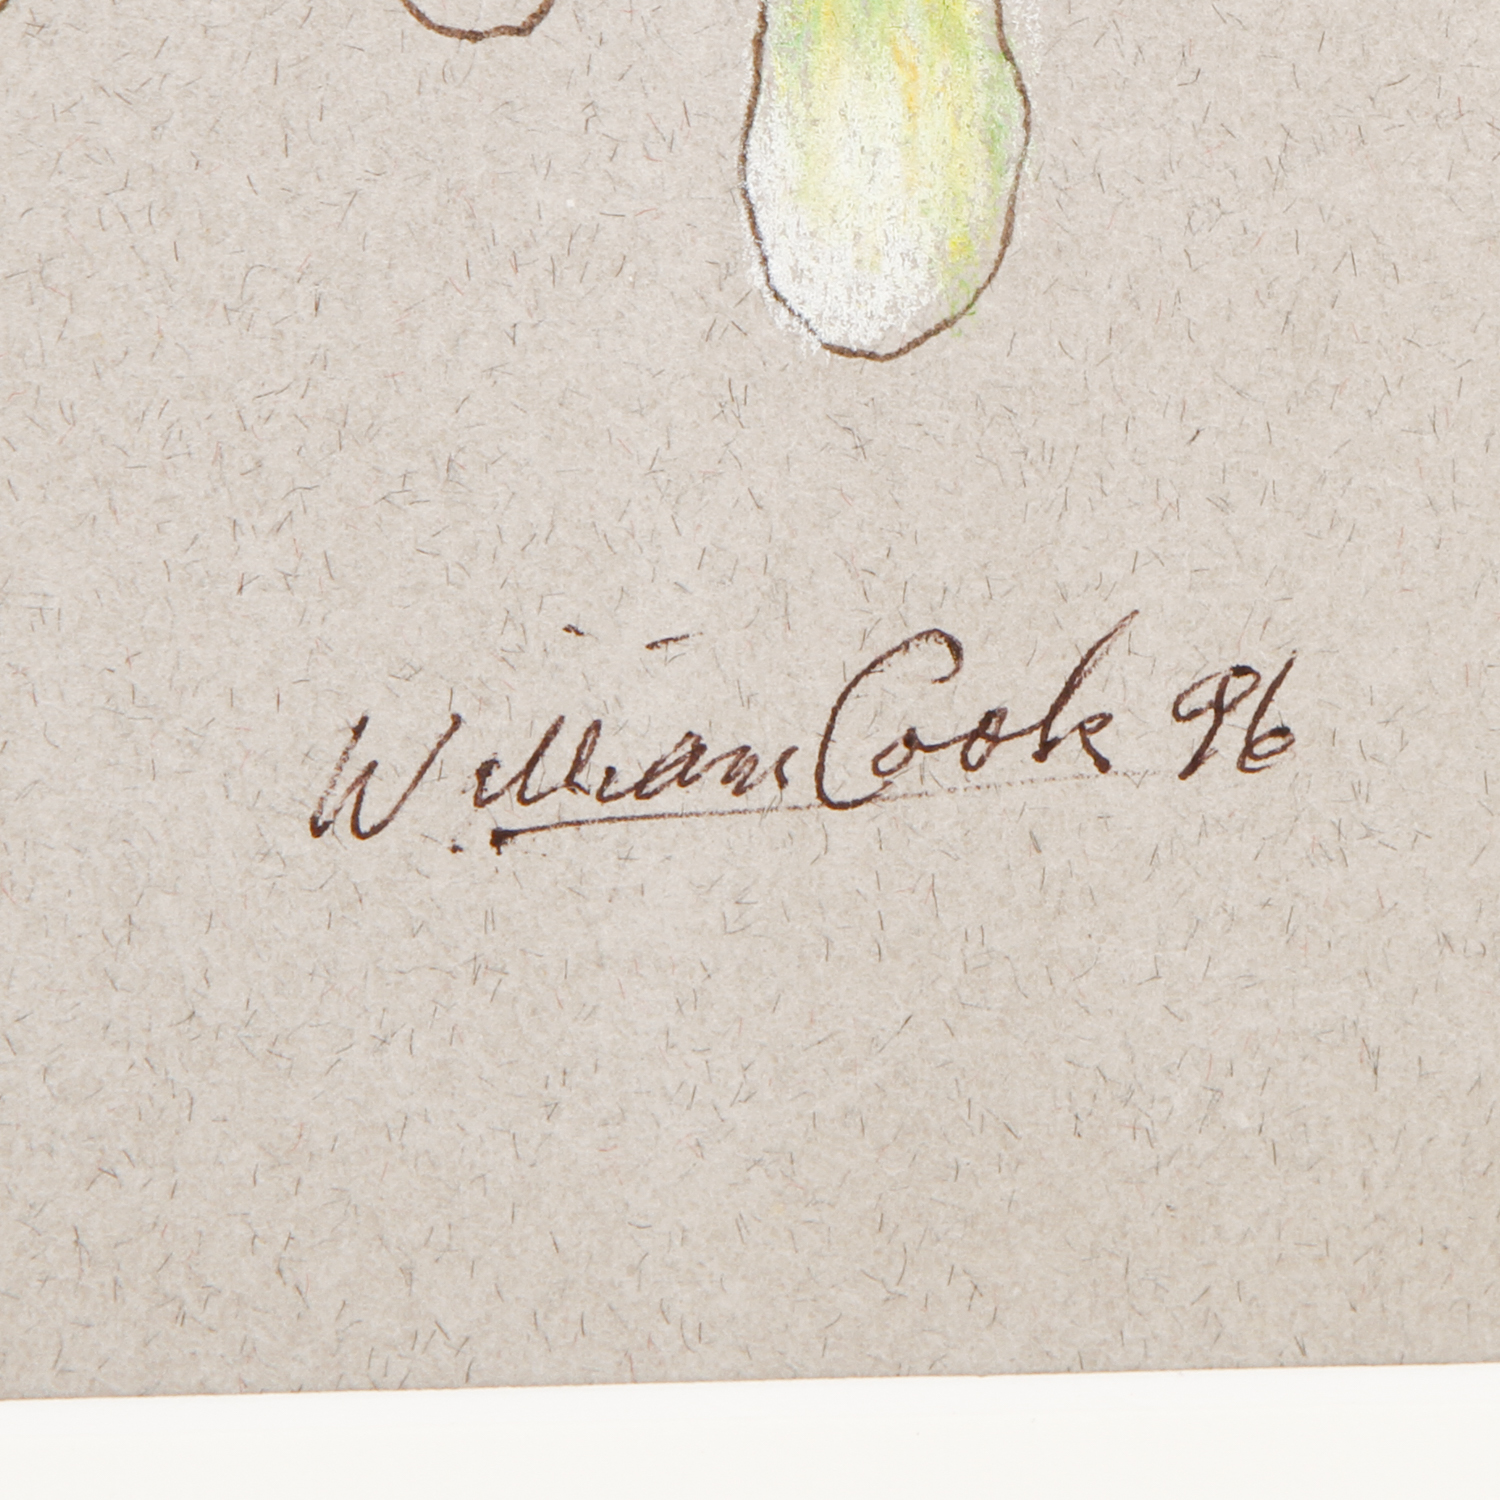 William Cook 96